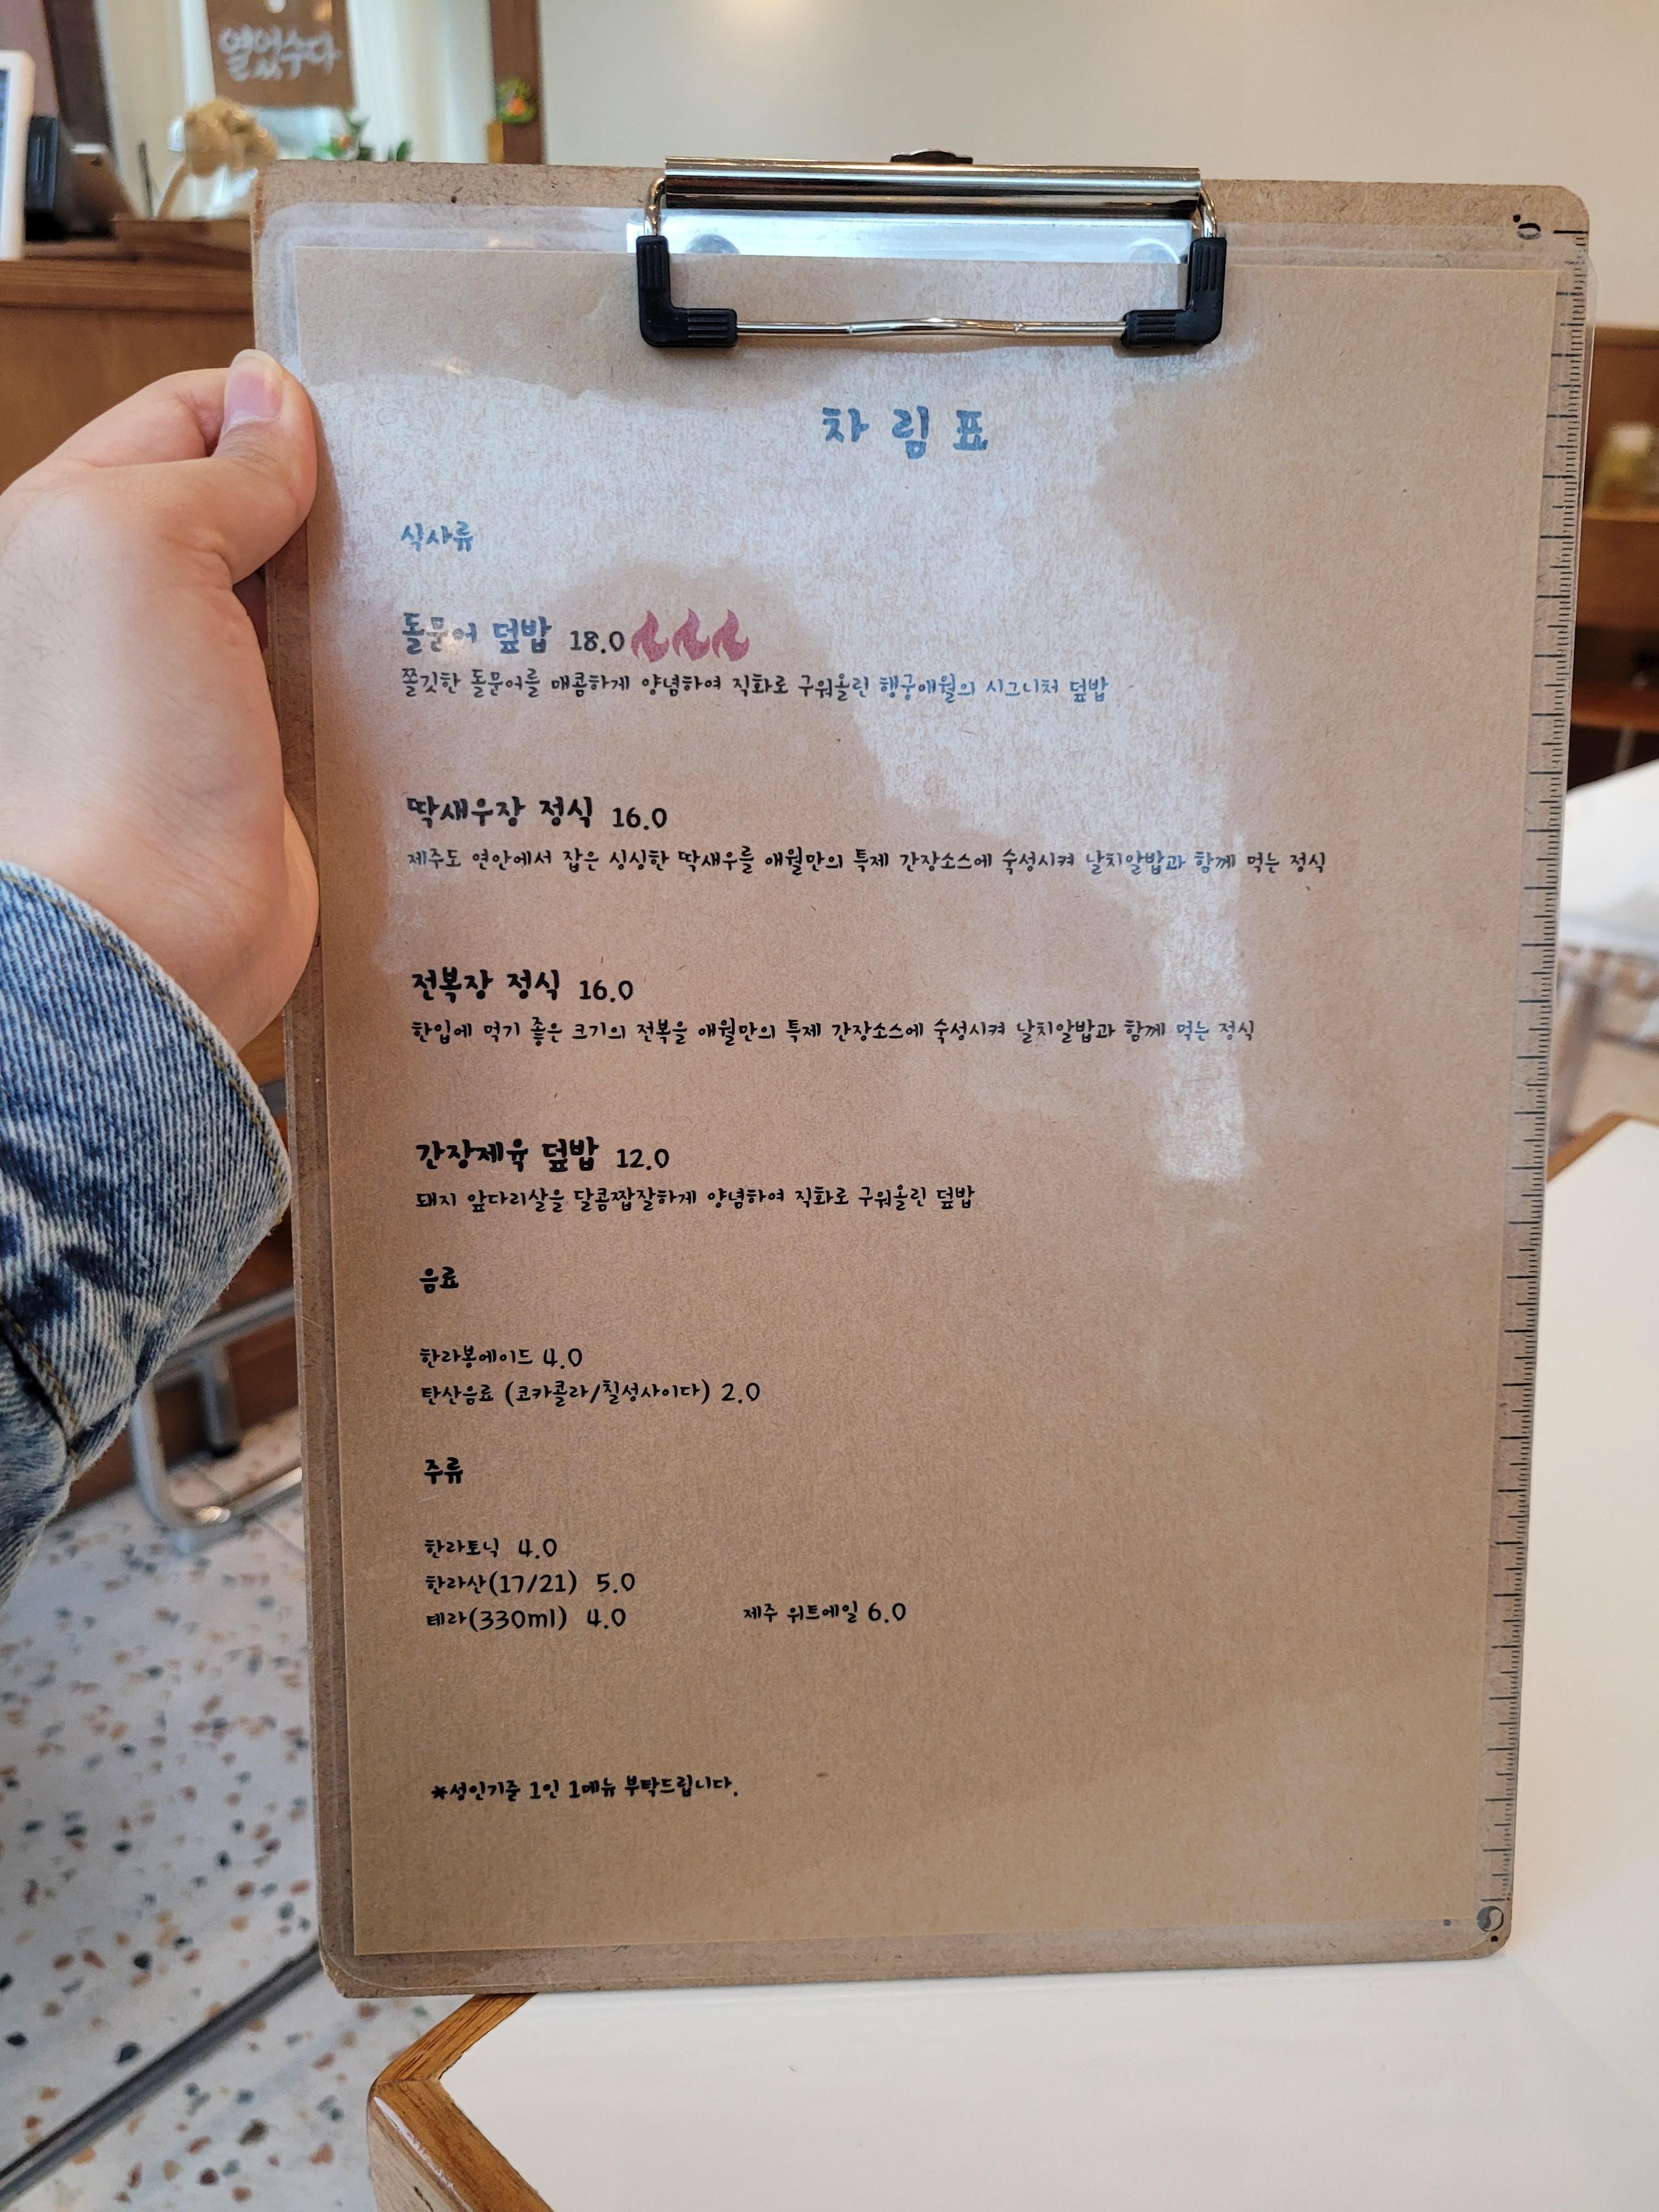 열었수다
차림표
식사류
돌문어 덮밥 18.0
쫄깃한 돌문어를 매콤하게 양념하여 직화로 구워올린 행궁애월의 시그니처 덮밥
딱새우장 정식 16.0
제주도 연안에서 잡은 싱싱한 딱새우를 애월만의 특제 간장소스에 숙성시켜 날치알밥과 함께 먹는 정식
전복장 정식 16.0
한입에 먹기 좋은 크기의 전복을 애월만의 특제 간장소스에 숙성시켜 날치알밥과 함께 먹는 정식
간장제육 덮밥 12.0
돼지 앞다리살을 달콤짭잘하게 양념하여 직화로 구워올린 덮밥
음료
한라봉에이드 4.0
탄산음료 (코카콜라/칠성사이다) 2.0
주류
한라토닉 4.0
한라산(17/21) 5.0
테라(330ml) 4.0 제주 위트에일 6.0
*성인기준 1인 1메뉴 부탁드립니다.